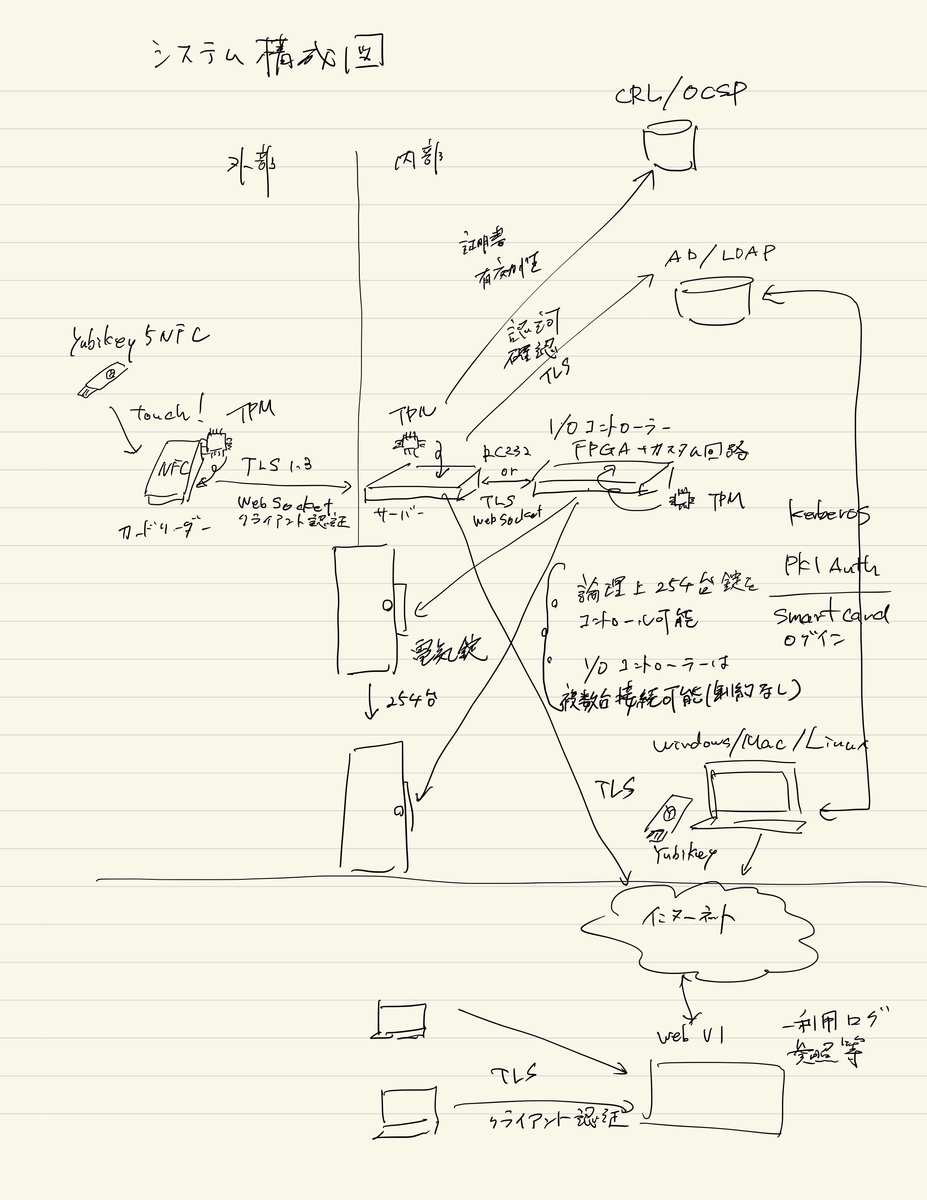 システム構成図
CRL/OCSP
外部
内部
証明書
有効性
AD/LDAP
認可
確認
TLS
Yubikey 5NFC
touch!
TPM
NFC
TLS 1.3
WebSocket
クライアント認証
カードリーダー
TPM
サーバー
RC232
or
TLS
WebSocket
I/Oコントローラー
FPGA+カスタム回路
TPM
kerberos
PKI Auth
Smartcard
ログイン
論理上254台錠を
コントロール可能
I/Oコントローラーは
複数台接続可能(制約なし)
電気錠
254台
Windows/Mac/Linux
TLS
Yubikey
インターネット
Web UI
利用ログ
参照等
TLS
クライアント認証